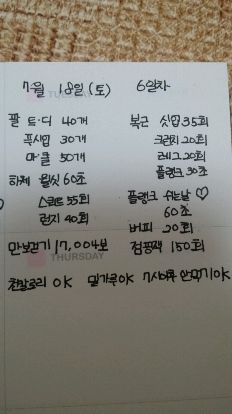 7월 18일 (토) 6일차
TUESDAY
팔 트·디 40개 복근 싯업 35회
푹시업 30개 크런치 20회
마·클 50개 레그 20회
하체 월싯 60초 플랭크 30초
스쿼트 55회 플랭크 쉬는날 ♡
런지 40회 60초
버피 20회
만보걷기 17,004보 점핑잭 150회
THURSDAY
천칼로리 OK 밀가루 OK 7시이후 안먹기 OK